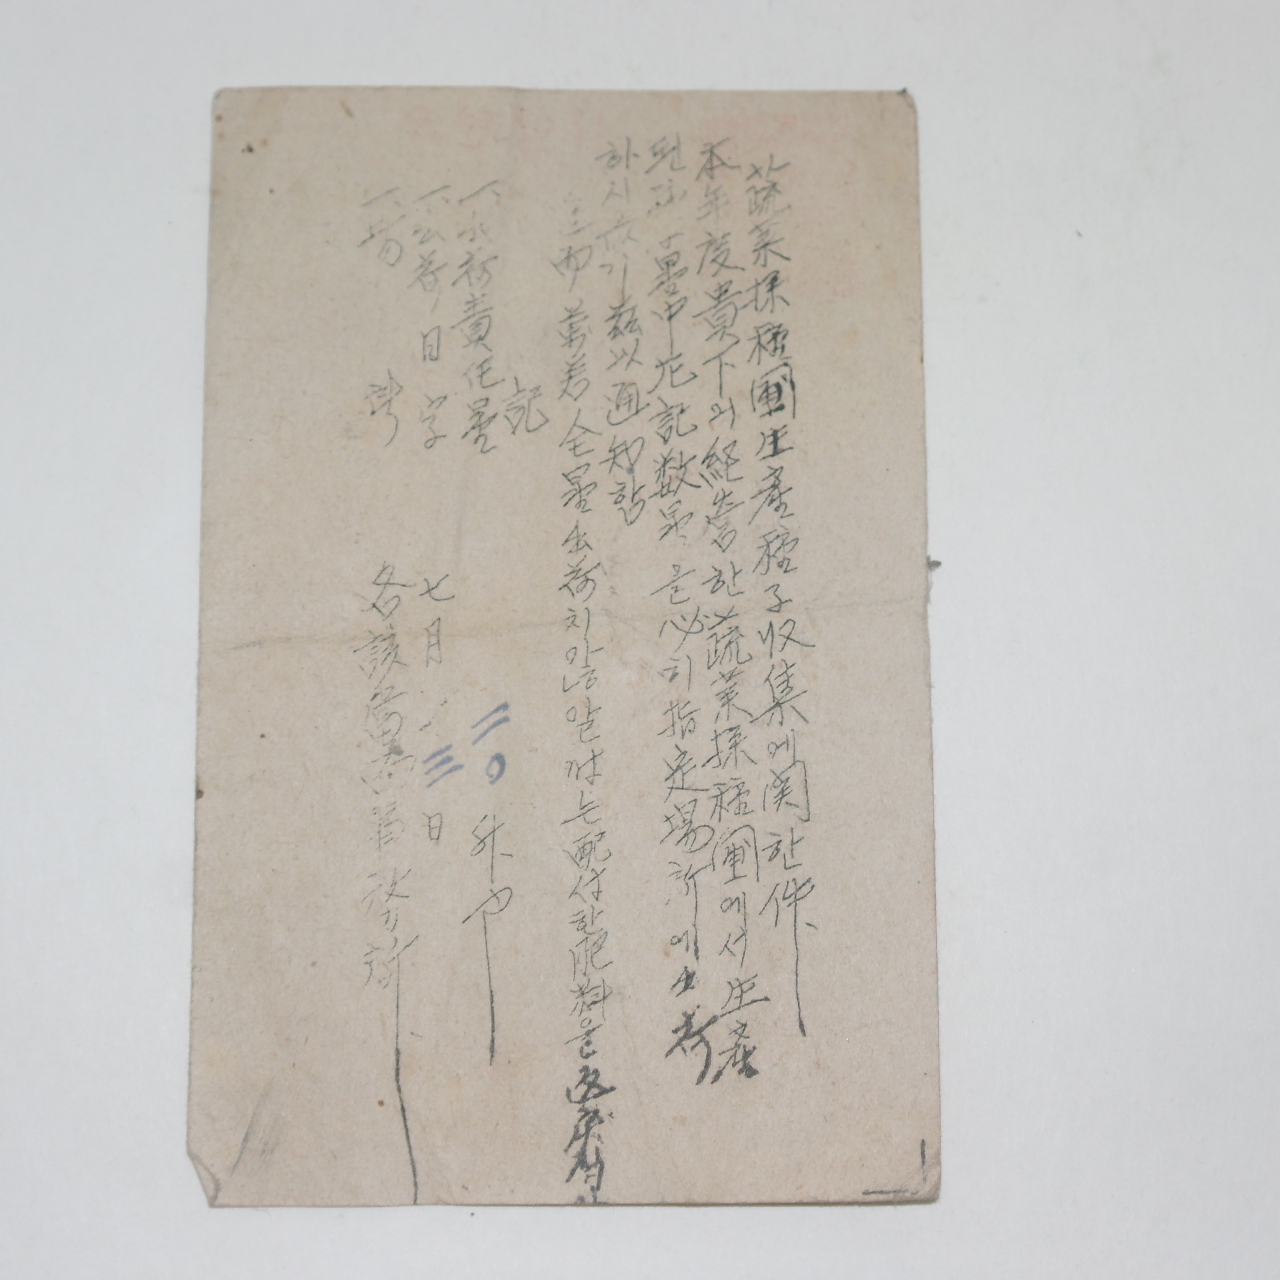 蔬菜採種圃生產種子收集에関한件
本年度貴下의經營한蔬菜採種圃에서生產
된 量中左記数量을必히指定場所에出荷
하시 기玆以通知함
而 萬若全量出荷치안을 는配付한肥料을
記
一、出荷責任量 二〇
一、出荷日字 七月 三 日
一、場 所 各該 面 所